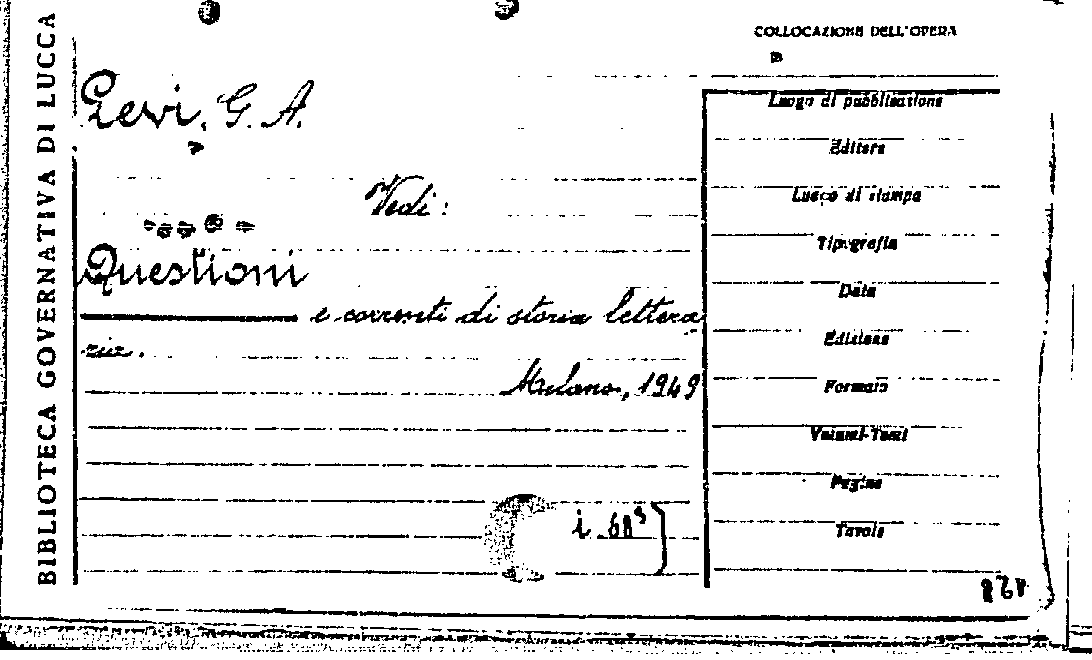 BIBLIOTECA GOVERNATIVA DI LUCCA
COLLOCAZIONE DELL'OPERA
Levi, G. A.
Vedi:
Questioni
e correnti di storia lettera
ria.
Milano, 1949
Luogo di pubblicazione
Editore
Luogo di stampa
Tipografia
Data
Edizione
Formato
Volumi-Tomi
Pagine
Tavole